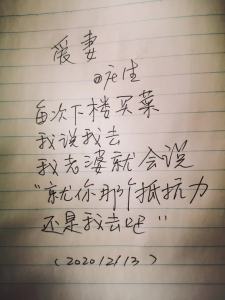 爱妻
@庆生
每次下楼买菜
我说我去
我老婆就会说
“就你那个抵抗力
还是我去吧”
(2020/2/13)